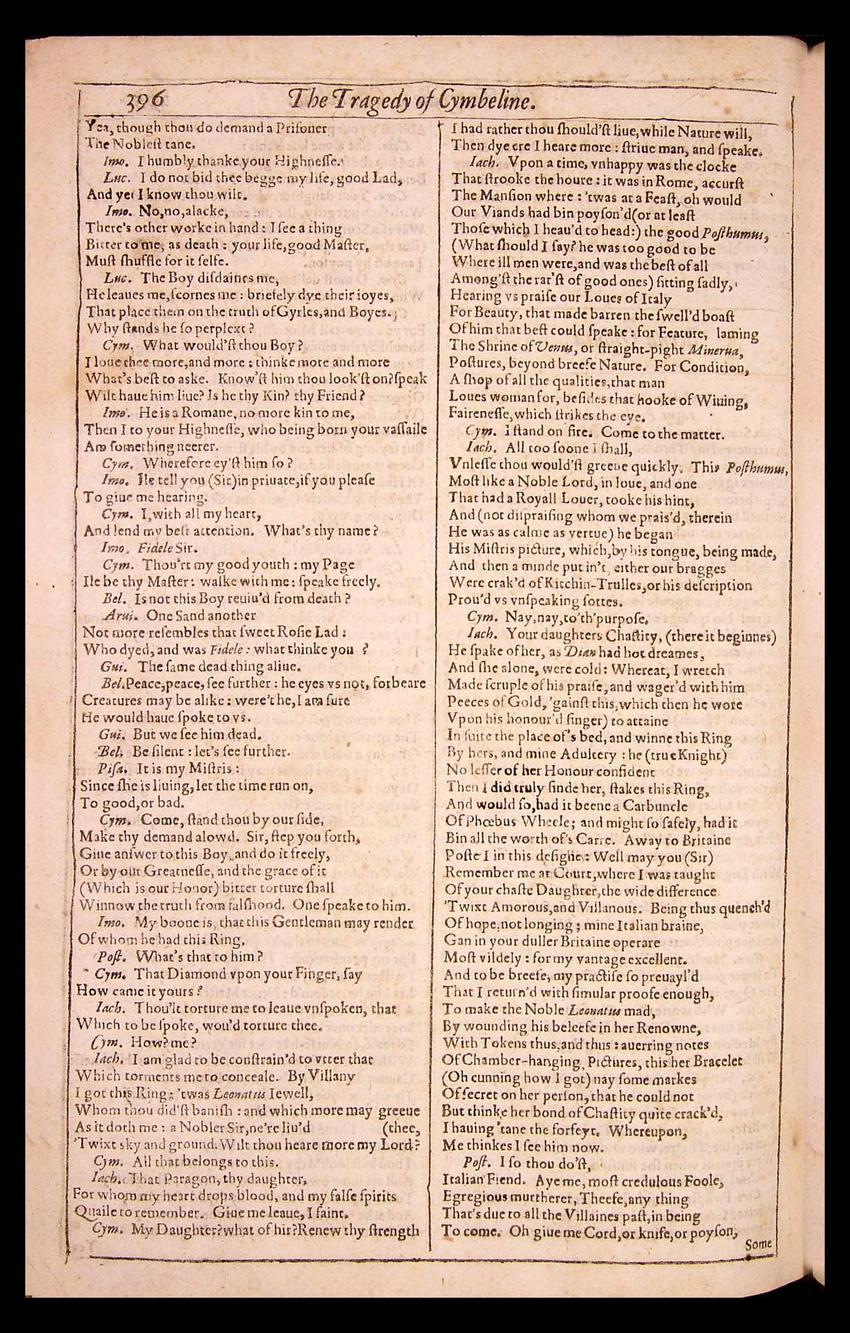 396
The Tragedy of Cymbeline.
Yea, though thou do demand a Prisoner
The Noblest tane.
Imo. I humbly thanke your Highnesse.
Luc. I do not bid thee begge my life, good Lad,
And yet I know thou wilt.
Imo. No,no,alacke,
There's other worke in hand : I see a thing
Bitter to me, as death : your life,good Master,
Must shuffle for it selfe.
Luc. The Boy disdaines me,
He leaues me,scornes me : briefely dye their ioyes,
That place them on the truth of Gyrles,and Boyes.
Why stands he so perplext ?
Cym. What would'st thou Boy ?
I loue thee more,and more : thinke more and more
What's best to aske. Know'st him thou look'st on?speak
Wilt haue him liue? Is he thy Kin? thy Friend ?
Imo. He is a Romane, no more kin to me,
Then I to your Highnesse, who being born your vassaile
Am something neerer.
Cym. Wherefore ey'st him so ?
Imo. Ile tell you (Sir)in priuate,if you please
To giue me hearing.
Cym. I,with all my heart,
And lend my best attention. What's thy name ?
Imo. Fidele Sir.
Cym. Thou'rt my good youth : my Page
Ile be thy Master : walke with me : speake freely.
Bel. Is not this Boy reuiu'd from death ?
Arui. One Sand another
Not more resembles that sweet Rosie Lad :
Who dyed, and was Fidele : what thinke you ?
Gui. The same dead thing aliue.
Bel.Peace,peace, see further : he eyes vs not, forbeare
Creatures may be alike : were't he,I am sure
He would haue spoke to vs.
Gui. But we see him dead.
Bel. Be silent : let's see further.
Pisa. It is my Mistris :
Since she is liuing,let the time run on,
To good,or bad.
Cym. Come, stand thou by our side,
Make thy demand alowd. Sir, step you forth,
Giue answer to this Boy, and do it freely,
Or by our Greatnesse, and the grace of it
(Which is our Honor) bitter torture shall
Winnow the truth from falshood. One speake to him.
Imo. My boone is, that this Gentleman may render
Of whom he had this Ring.
Post. What's that to him ?
Cym. That Diamond vpon your Finger, say
How came it yours ?
Iach. Thou'lt torture me to leaue vnspoken, that
Which to be spoke, wou'd torture thee.
Cym. How? me ?
Iach. I am glad to be constrain'd to vtter that
Which torments me to conceale. By Villany
I got this Ring : 'twas Leonatus Iewell,
Whom thou did'st banish : and which more may greeue
As it doth me : a Nobler Sir,ne're liu'd (thee,
'Twixt sky and ground.Wilt thou heare more my Lord?
Cym. All that belongs to this.
Iach. That Paragon, thy daughter,
For whom my heart drops blood, and my false spirits
Quaile to remember. Giue me leaue, I faint.
Cym. My Daughter?what of hir?Renew thy strength
I had rather thou should'st liue,while Nature will,
Then dye ere I heare more : striue man, and speake.
Iach. Vpon a time, vnhappy was the clocke
That strooke the houre : it was in Rome, accurst
The Mansion where : 'twas at a Feast, oh would
Our Viands had bin poyson'd(or at least
Those which I heau'd to head:) the good Posthumus,
(What should I say? he was too good to be
Where ill men were,and was the best of all
Among'st the rar'st of good ones) sitting sadly,
Hearing vs praise our Loues of Italy
For Beauty, that made barren the swell'd boast
Of him that best could speake : for Feature, laming
The Shrine of Venus, or straight-pight Minerua,
Postures, beyond breefe Nature. For Condition,
A shop of all the qualities,that man
Loues woman for, besides that hooke of Wiuing,
Fairenesse,which strikes the eye.
Cym. I stand on fire. Come to the matter.
Iach. All too soone I shall,
Vnlesse thou would'st greeue quickly. This Posthumus,
Most like a Noble Lord, in loue, and one
That had a Royall Louer, tooke his hint,
And (not dispraising whom we prais'd, therein
He was as calme as vertue) he began
His Mistris picture, which,by his tongue, being made,
And then a minde put in't, either our bragges
Were crak'd of Kitchin-Trulles,or his description
Prou'd vs vnspeaking sottes.
Cym. Nay,nay,to'th'purpose.
Iach. Your daughters Chastity, (there it beginnes)
He spake of her, as Dian had hot dreames,
And she alone, were cold : Whereat, I wretch
Made scruple of his praise,and wager'd with him
Peeces of Gold, 'gainst this,which then he wore
Vpon his honour'd finger) to attaine
In suite the place of's bed, and winne this Ring
By hers, and mine Adultery : he (true Knight)
No lesser of her Honour confident
Then I did truly finde her, stakes this Ring,
And would so,had it beene a Carbuncle
Of Phœbus Wheele; and might so safely, had it
Bin all the worth of's Carre. Away to Britaine
Poste I in this designe : Well may you (Sir)
Remember me at Court,where I was taught
Of your chaste Daughter,the wide difference
'Twixt Amorous,and Villanous. Being thus quench'd
Of hope,not longing ; mine Italian braine,
Gan in your duller Britaine operare
Most vildely : for my vantage excellent.
And to be breefe, my practise so preuayl'd
That I return'd with simular proofe enough,
To make the Noble Leonatus mad,
By wounding his beleefe in her Renowne,
With Tokens thus,and thus : auerring notes
Of Chamber-hanging, Pictures, this her Bracelet
(Oh cunning how I got) nay some markes
Of secret on her person, that he could not
But thinke her bond of Chastity quite crack'd,
I hauing 'tane the forfeyt. Whereupon,
Me thinkes I see him now.
Post. I so thou do'st,
Italian Fiend. Aye me, most credulous Foole,
Egregious murtherer, Theefe,any thing
That's due to all the Villaines past,in being
To come. Oh giue me Cord,or knife,or poyson,
Some